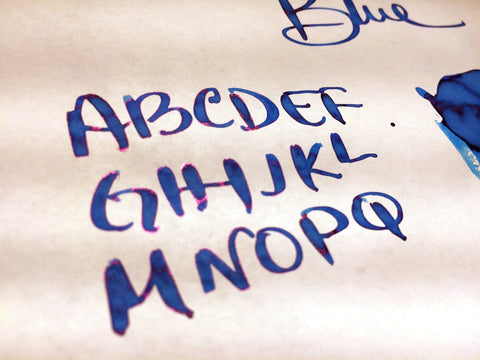 Blue
ABCDEF
GHIJKL
MNOPQ